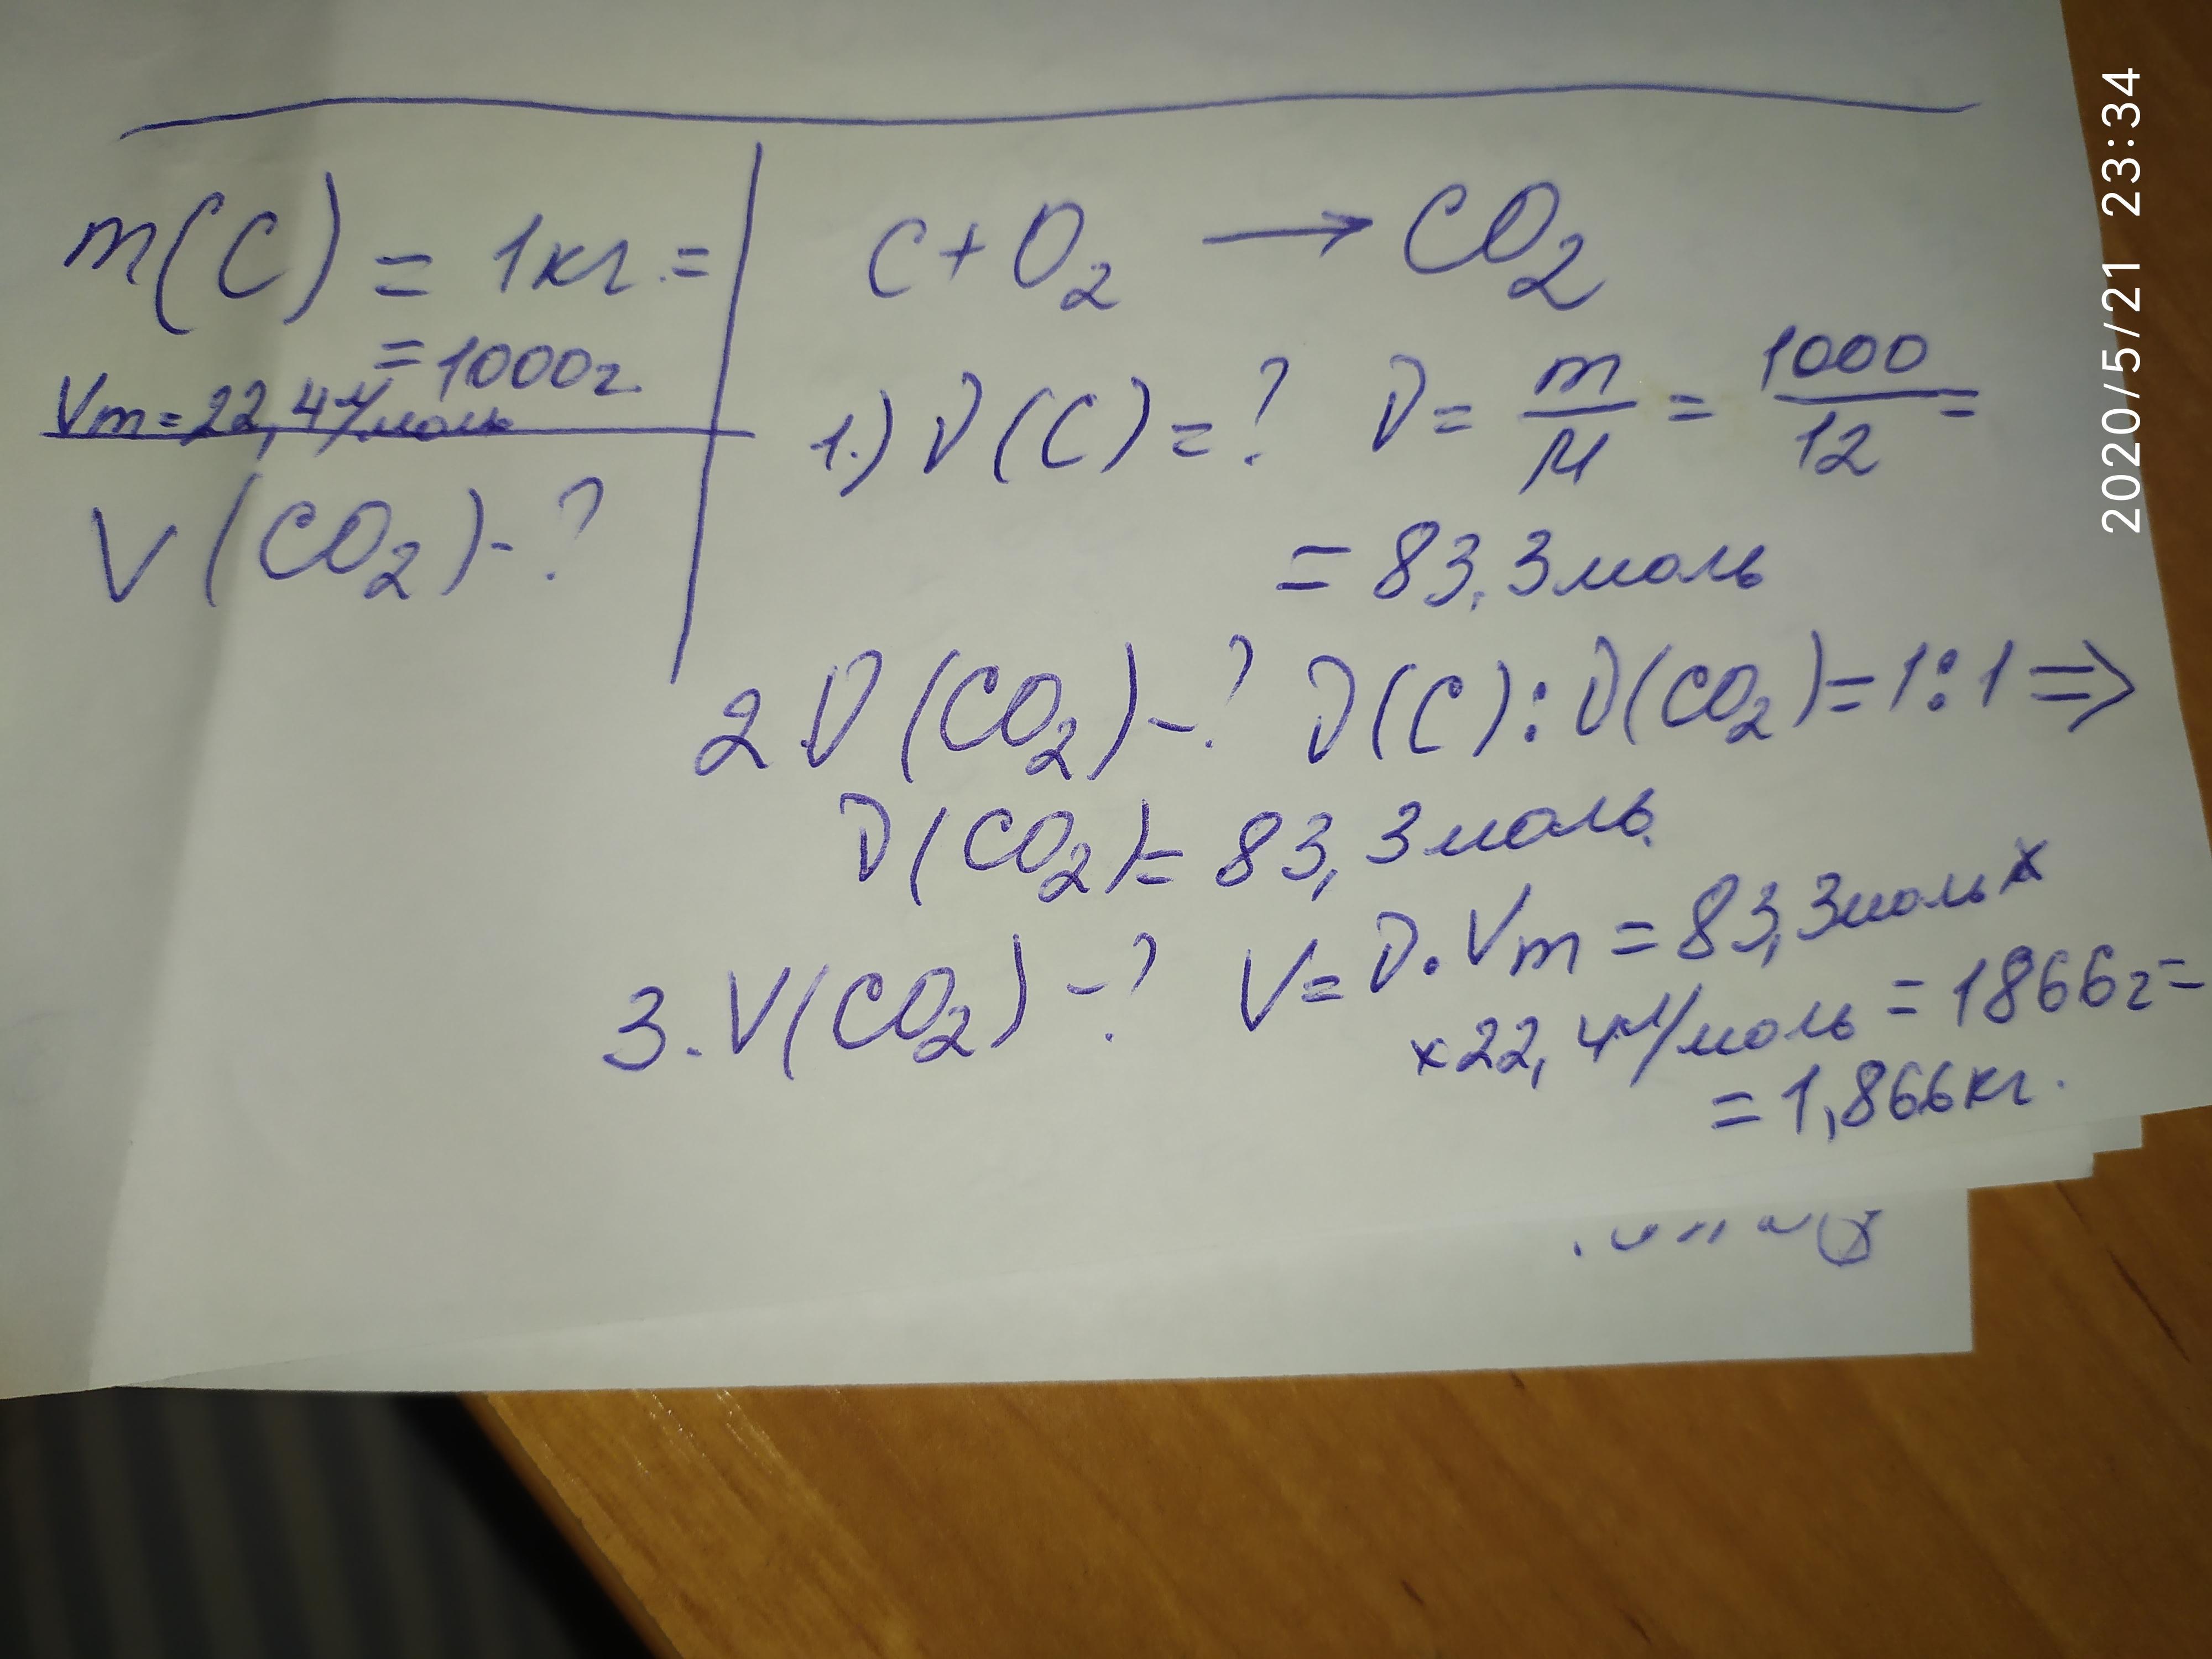 m(C) = 1кг. =
= 1000г
Vm = 22,4 л/моль
V(CO₂) - ?
C + O₂ → CO₂
1.) ν(C) = ? ν = m/M = 1000/12 =
= 83,3 моль
2 ν(CO₂) - ? ν(C) : ν(CO₂) = 1:1 ⇒
ν(CO₂) = 83,3 моль.
3. V(CO₂) - ? V = ν · Vm = 83,3 моль x
x 22,4 л/моль = 1866г =
= 1,866 кг.
2020/5/21 23:34